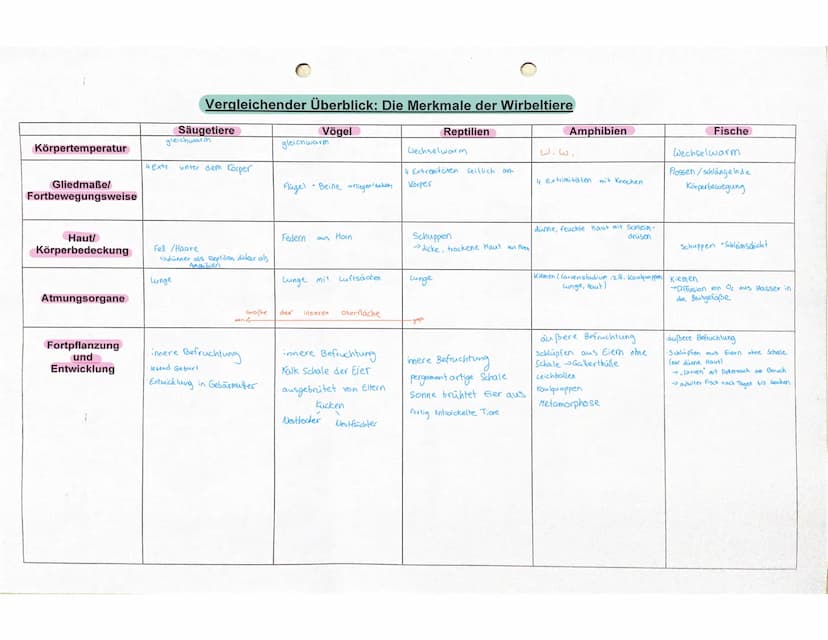 Vergleichender Überblick: Die Merkmale der Wirbeltiere
Säugetiere
Vögel
Reptilien
Amphibien
Fische
Körpertemperatur
gleichwarm
gleichwarm
Wechselwarm
W.W.
Wechselwarm
Gliedmaße/
Fortbewegungsweise
4 Extr. unter dem Körper
Flügel + Beine
4 Extremitäten seitlich am
Körper
4 Extrimitäten mit Knochen
Flossen/schlängelnde
Körperbewegung
Haut/
Körperbedeckung
Fell/Haare
dünner als Reptilien dicker als
Amphibien
Federn aus Horn
Schuppen
→ dicke, trockene Haut aus Horn
dünne, feuchte Haut mit Schleim-
drüsen
Schuppen + Schleimschicht
Atmungsorgane
Lunge
Lunge mit Luftsäcken
Lunge
Kiemen (Larvenstadium, z.B. Kaulquappen)
Lunge, Haut)
Kiemen
→ Diffusion von O₂ aus Wasser in
die Blutgefäße
Größe der inneren Oberfläche
Fortpflanzung
und
Entwicklung
innere Befruchtung
lebend Geburt
Entwicklung in Gebärmutter
innere Befruchtung
Kalk Schale der Eier
ausgebrütet von Eltern
Kücken
Nesthocker
Nestflüchter
innere Befruchtung
pergamentartige Schale
Sonne brühtet Eier aus
fertig entwickelte Tiere
äußere Befruchtung
Schlüpfen aus Eiern ohne
Schale → Gallerthülle
Leichtvolles
Kaulquappen
Metamorphose
äußere Befruchtung
Schlüpfen aus Eiern ohne Schale
(nur dünne Haut)
→ "Larven" mit Dottersack am Bauch
→ adulter Fisch nach Tagen bis Wochen